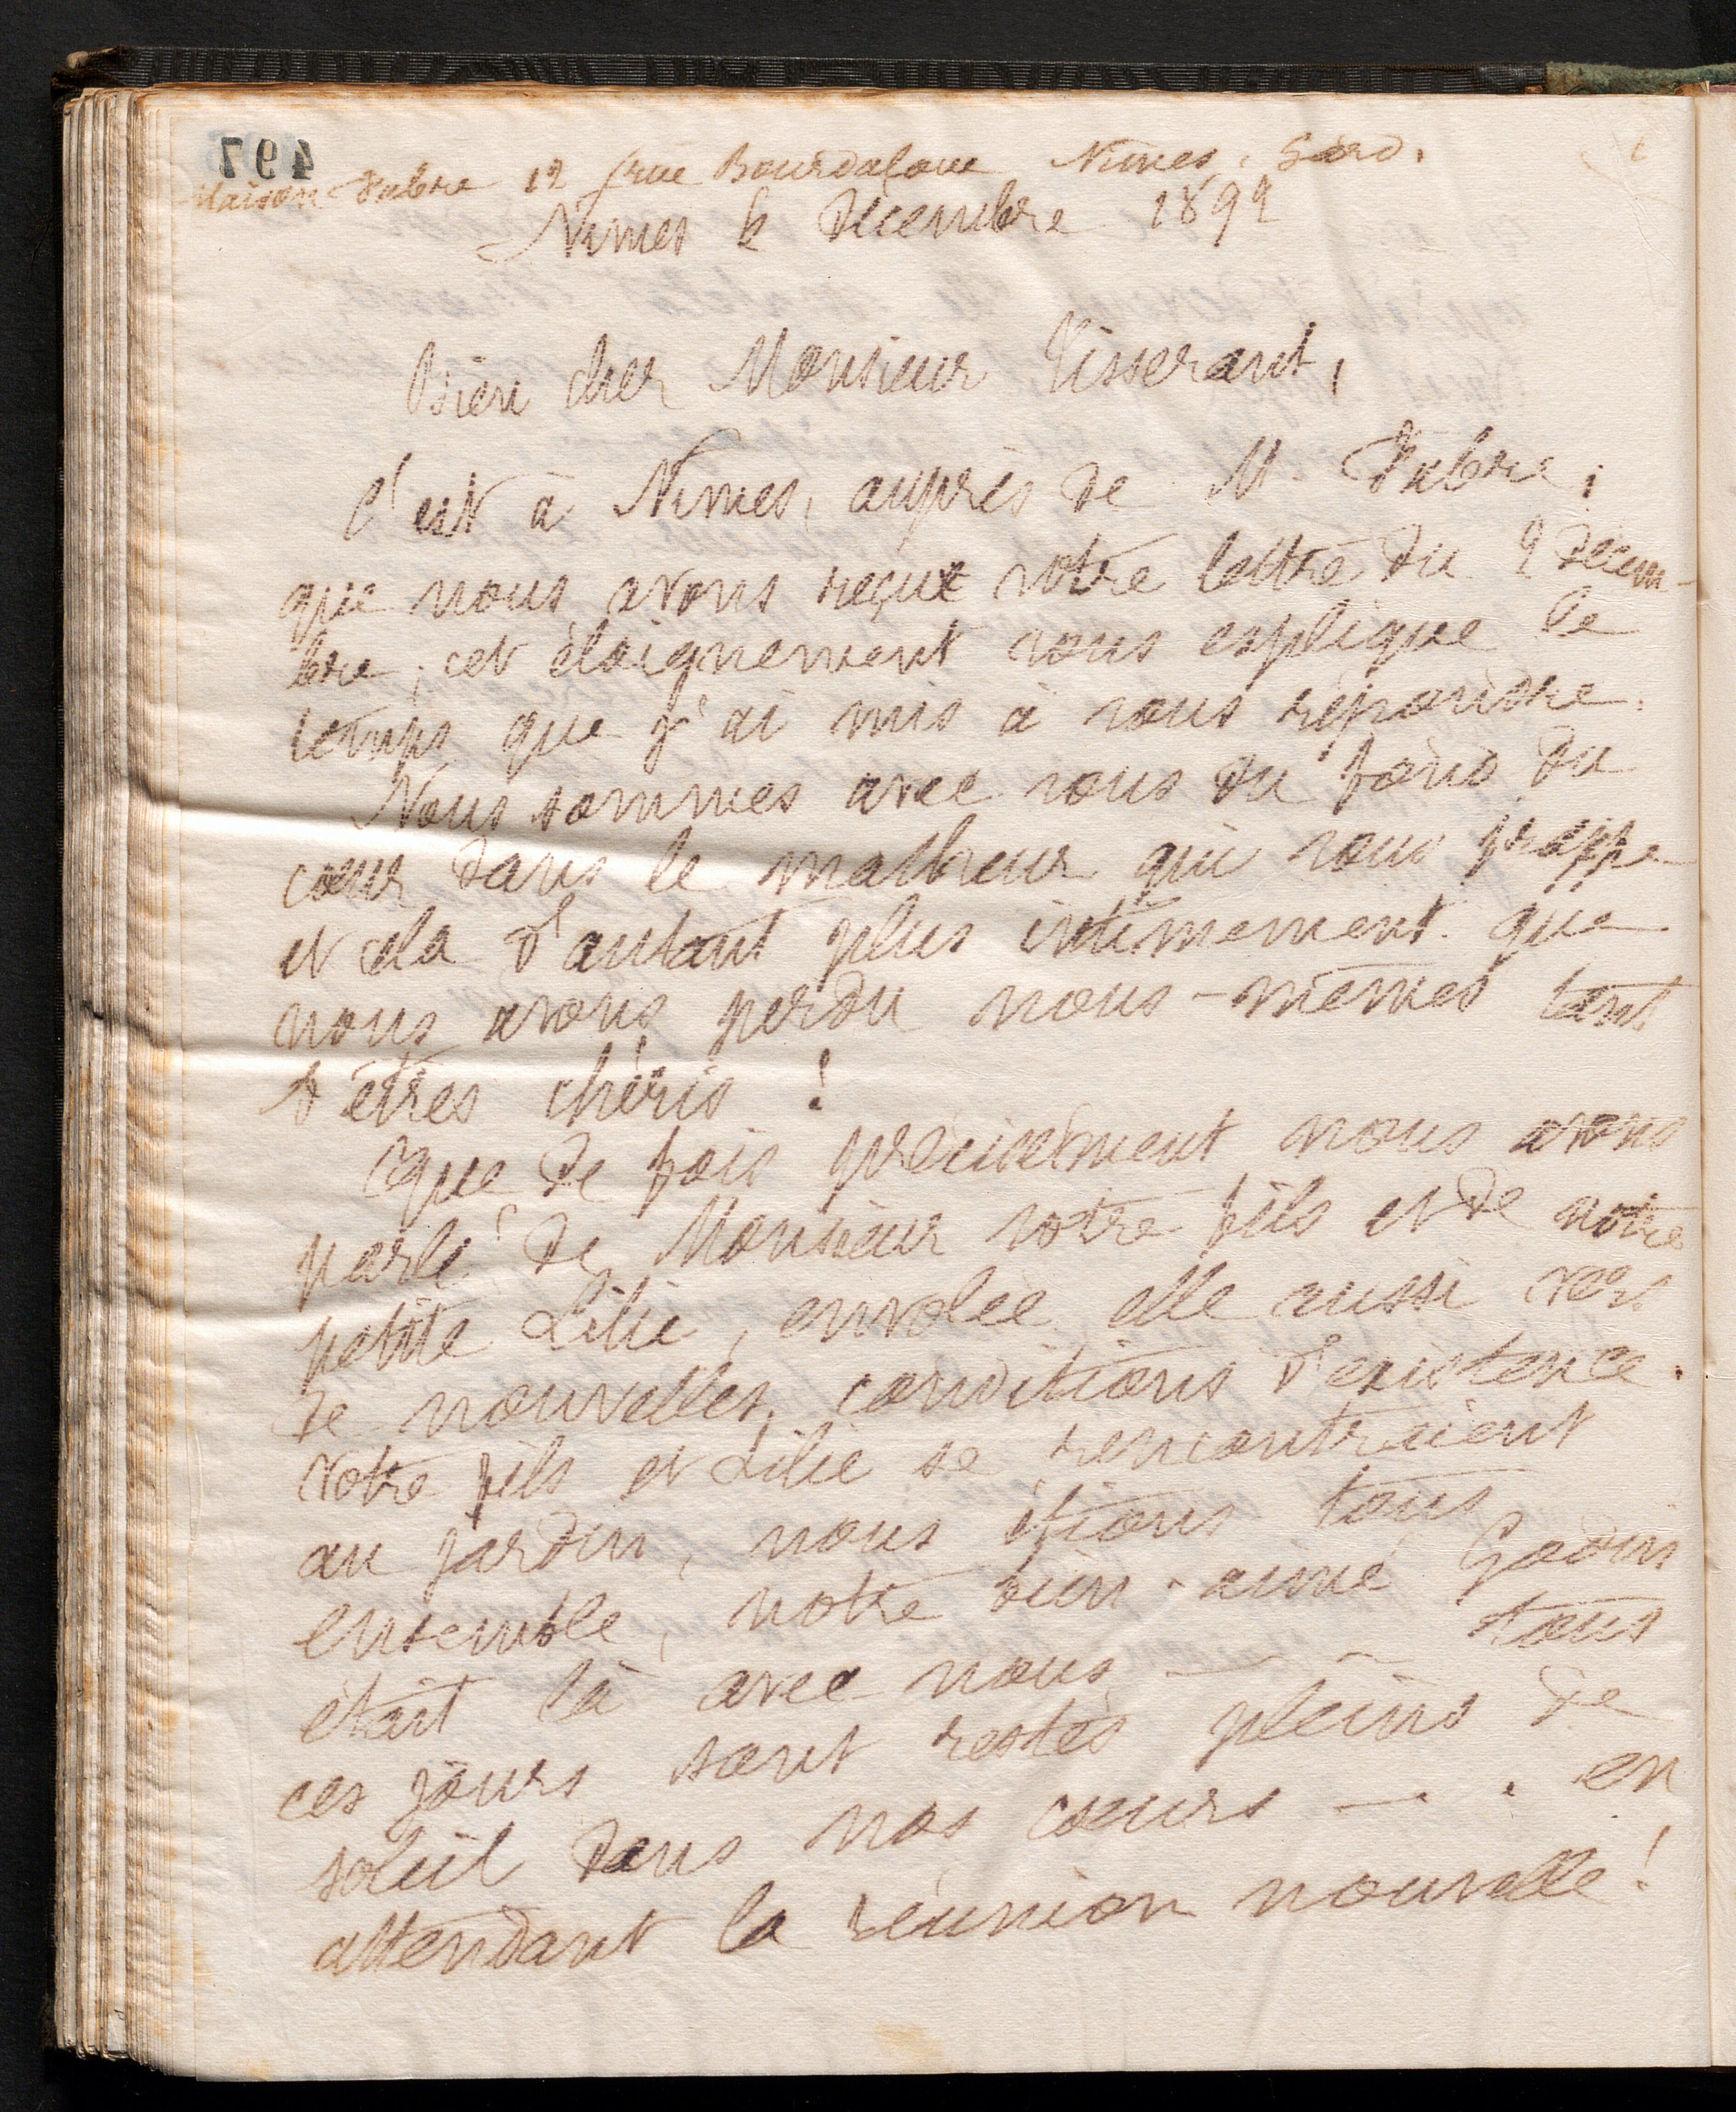 497
Maison Fabre 12 rue Bourdaloue Nimes, Gard.
Nimes le Décembre 1899
Bien cher Monsieur Tisserant,
C'est à Nimes, auprès de M. Fabre,
que nous avons reçue votre lettre du 9 Décem-
bre ; cet éloignement vous explique le
temps que j'ai mis à vous répondre.
Nous sommes avec vous du fond du
cœur dans le malheur qui vous frappe
et cela d'autant plus intimement que
nous avons perdu nous-mêmes tant
d'êtres chéris !
Que de fois précisément nous avons
parlé de Monsieur votre fils et de notre
petite Lilie, envolée elle aussi vers
de nouvelles conditions d'existence.
Votre fils et Lilie se rencontraient
au jardin, nous étions tous
ensemble, notre bien-aimé Godin
était là avec nous — — tous
ces jours sont restés pleins de
soleil dans nos cœurs — . en
attendant la réunion nouvelle !